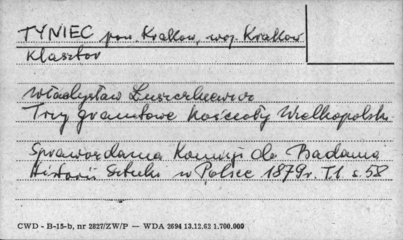 TYNIEC pow. Kraków, woj. Kraków
Klasztor
Władysław Łuszczkiewicz
Trzy granitowe kościoły Wielkopolski
Sprawozdania Komisji do Badania
Historii Sztuki w Polsce 1879r. T1 s.58
CWD - B-15-b, nr 2827/ZW/P — WDA 2694 13.12.62 1.700.000